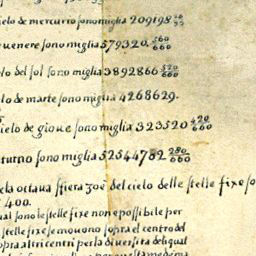 ielo de mercurro sono miglia 209198
uenere sono miglia 579320. 560/660
lo del sol sono miglia 3892866 520/660
lo de marte sono miglia 4268629.
ielo de gioue sono miglia 323520 420/660
turno sono miglia 52544702 280/660
ela ottaua sfiera zoè del cielo delle stelle fixe so
400.
ual sono le stelle fixe non e possibile per
stelle fixe se mouono sopra el centro del
opra altri centri per la diuersita del qual